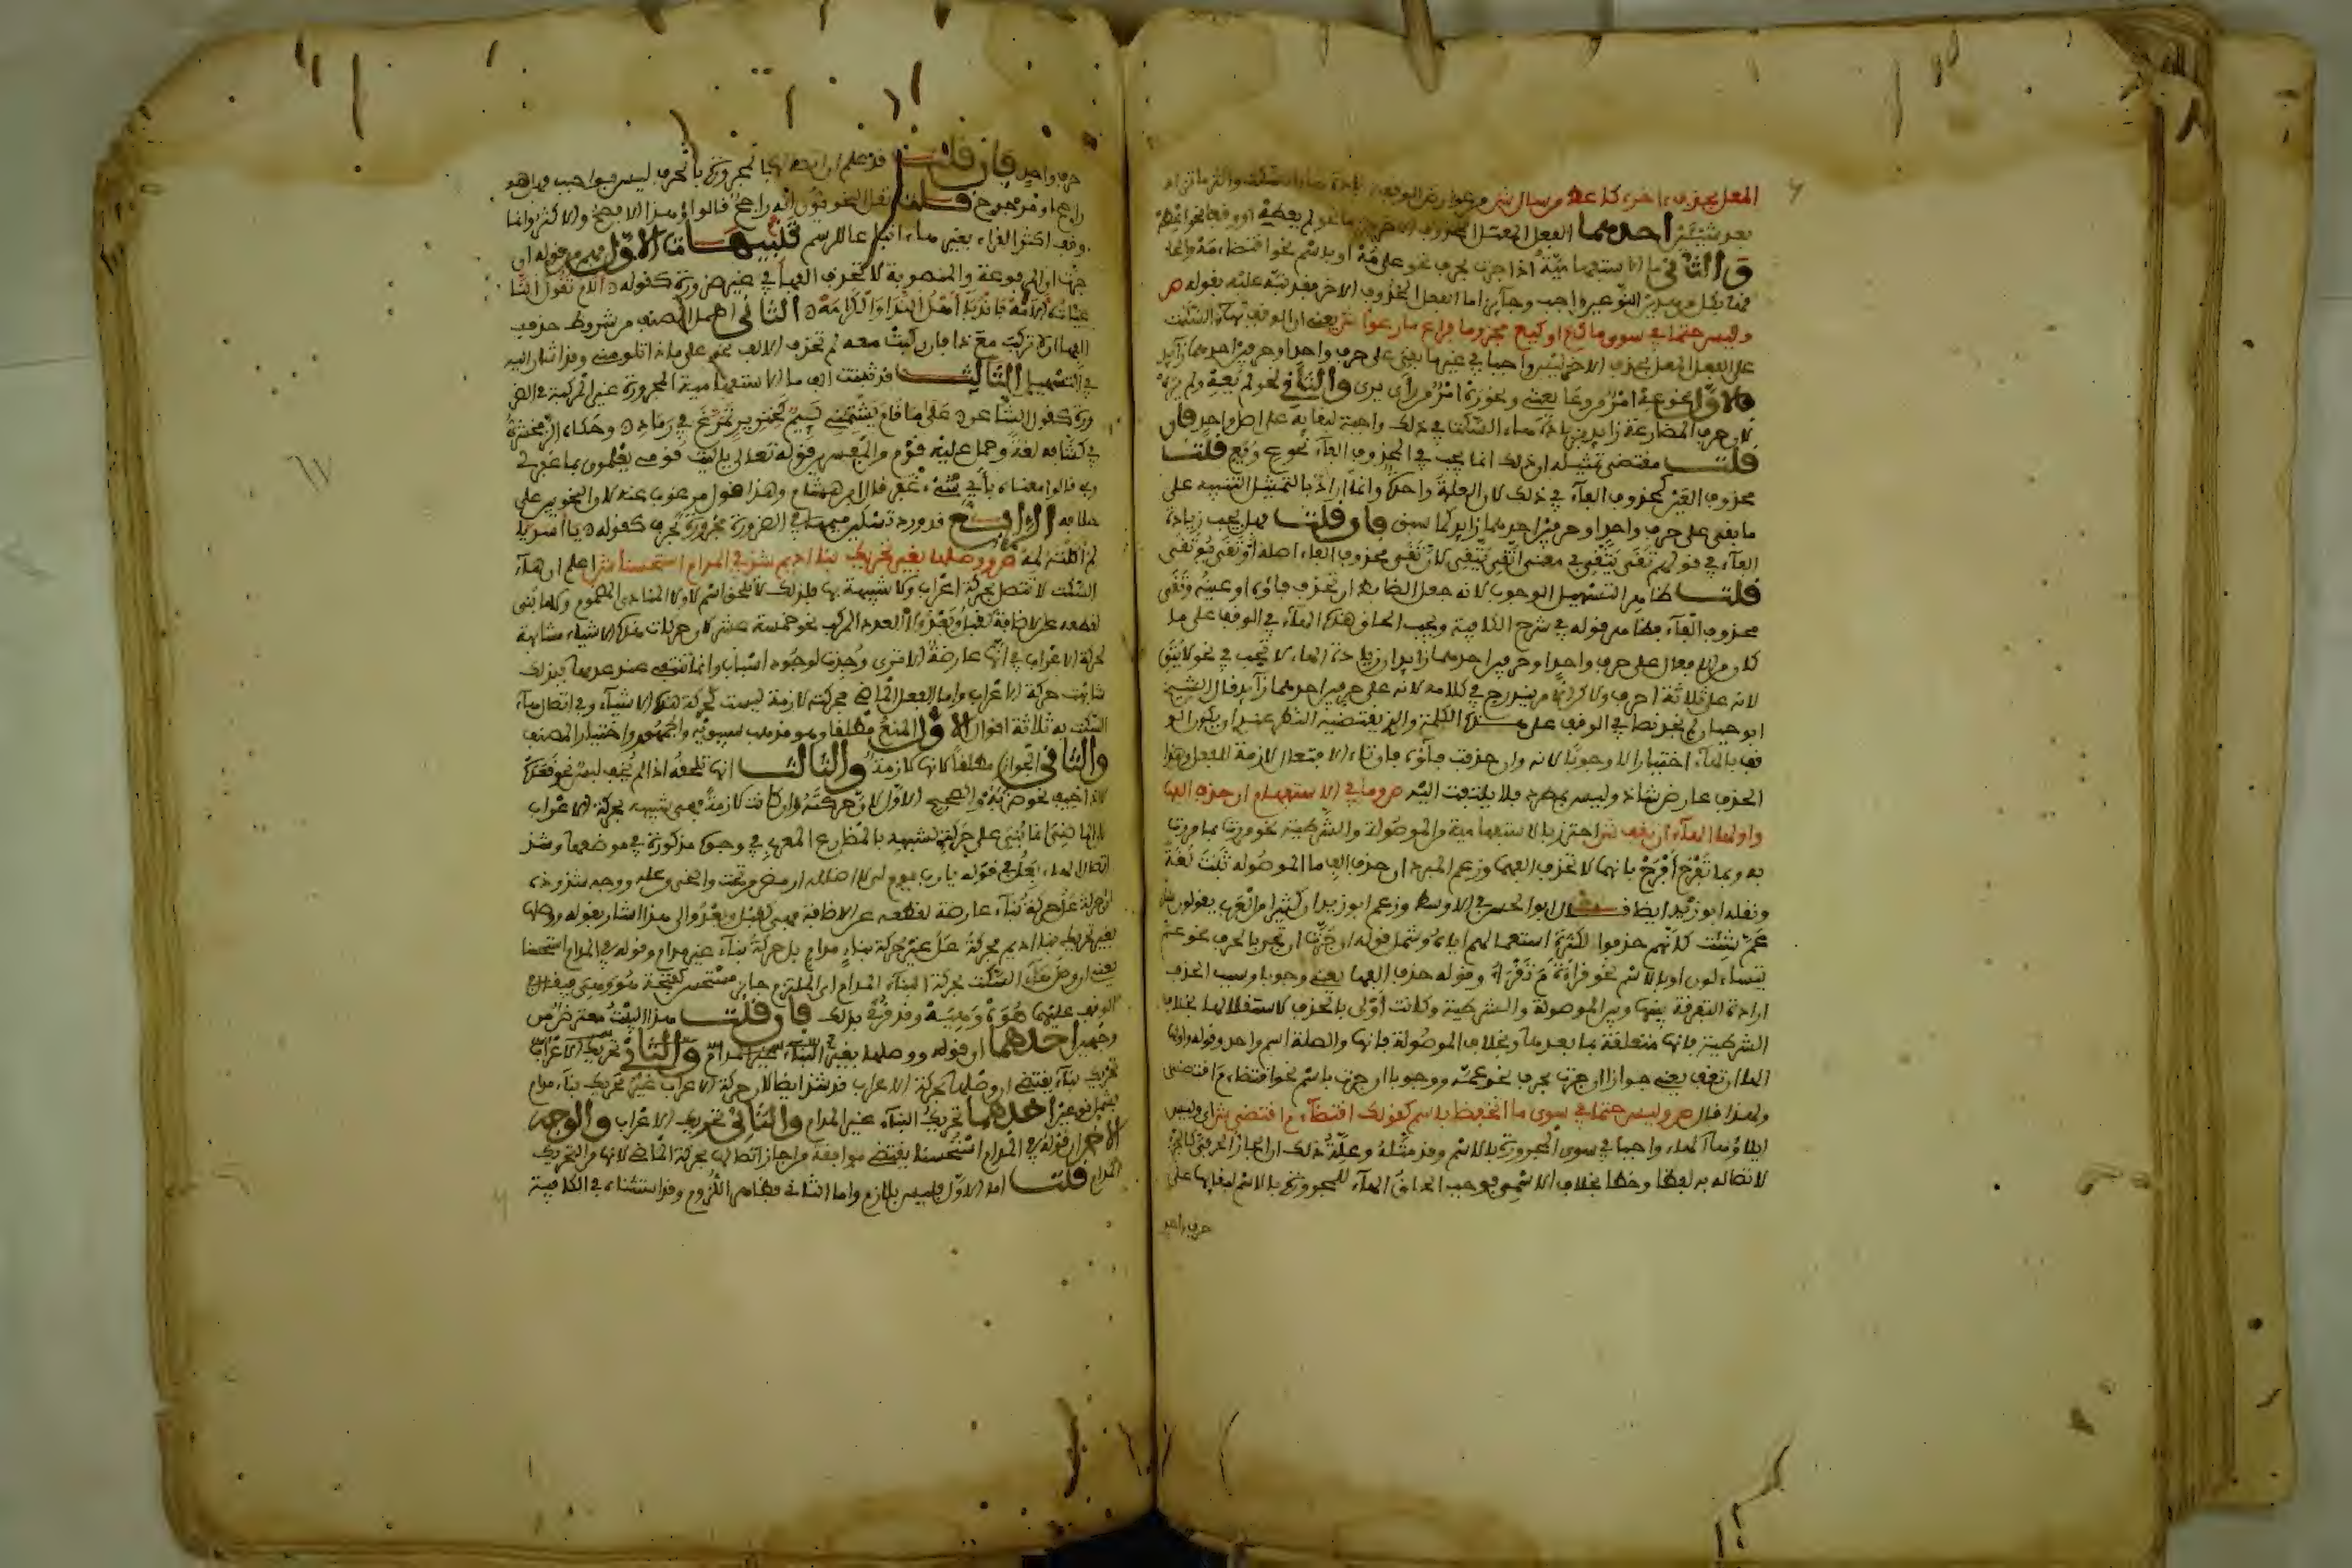 المعل بحذف آخر كأعط من سأل ش من عوارض الوقف زيادة هاء السكت والثر ما تزاد
بعد شيئين أحدهما الفعل المعتل المحذوف الآخر نحو لم يعطه
والثاني ما الاستفهامية اذا جرت بحرف نحو على مه او باسم نحو اقتضاء مه
اما الفعل المحذوف الآخر فقد نبه عليه بقوله ص
وليس حتما في سوى ما كع او كيع مجزوما فراع ما رعوا ش يعني ان الوقف بهاء السكت
على الفعل المعل بحذف الآخر ليس واجبا في غير ما بقي على حرف واحد او حرفين احدهما زائد
فالاول نحو عه امر من وعى يعي ونحو ره امر من رأى يرى والثاني نحو لم يعه ولم يره
لان حرف المضارعة زائد فزيادة هاء السكت في ذلك واجبة لبقائه على اصل واحد فان
قلت مقتضى تمثيله ان ذلك انما يجب في المحذوف الفاء نحو ع وقع قلت
محذوف العين كمحذوف الفاء في ذلك لان العلة واحدة وانما اراد بالتمثيل التنبيه على
ما بقي على حرف واحد او حرفين احدهما زائد كما سبق فان قلت هل يجب زيادة
الهاء في قولهم تقى يتقي في معنى اتقى يتقي لان تقى محذوف الفاء اصله اوتقى يوتقي
قلت ظاهر التسهيل الوجوب لانه جعل الضابط ان تحذف فاؤه او عينه وتقى
محذوف الفاء فظاهر قوله في شرح الكافية ويجب الحاق هذه الهاء في الوقف على ما
كان من الافعال على حرف واحد او حرفين احدهما زائد ان زيادة الهاء لا تجب في نحو لا يتق
لانه على ثلاثة احرف ولا تق لم يندرج في كلامه لانه على حرفين احدهما زائد قال الشيخ
ابو حيان لم نجد نصا في الوقف على هذه الكلمة والذي يقتضيه النظر عندي ان يكون الو
قف بالهاء اختيارا لا وجوبا لانه وان حذفت فاؤه فان تاء الافتعال لازمة للفعل وهذا
الحذف عارض شاذ وليس بمطرد فلا يلتفت اليه ص وما في الاستفهام ان جرت حذف الفها
واولها الهاء ان تقف ش احترز بالاستفهامية من الموصولة والشرطية نحو مررت بما مررت
به وبما تفرح افرح فانهما لا تحذف الفهما وزعم المبرد ان حذف الف ما الموصولة ثبت لغة
ونقله ابو زيد ايضا قال ابو الحسن في الاوسط وزعم ابو زيد ان كثيرا من العرب يقولون سل
عم شئت كأنهم حذفوا لكثرة استعمالهم اياه وشمل قوله ان جرت ان تجر بالحرف نحو عم
يتساءلون او بالاسم نحو قراءة م تقرأ وقوله حذف الفها يعني وجوبا وسبب الحذف
ارادة التفرقة بينها وبين الموصولة والشرطية وكانت أولى بالحذف لاستقلالها بخلاف
الشرطية فانها متعلقة بما بعدها وبخلاف الموصولة فانها والصلة اسم واحد وقوله واولها
الها ان تقف يعني جوازا ان جرت بحرف نحو عمه ووجوبا ان جرت باسم نحو اقتضاء م اقتضى
ولهذا قال ص وليس حتما في سوى ما انخفضا باسم كقولك اقتضاء م اقتضى ش اي وليس
ايلاؤها الهاء واجبا في سوى المجرورة بالاسم وقد مثله وعلة ذلك ان الجار الحرفي كالجزء
لاتصاله به لفظا وخطا بخلاف الاسم فوجب الحاق الهاء للمجرورة بالاسم لبقائها على
حرف واحد
حرف واحد فان قلت قد علم ان اتصالها بالمجرورة بالحرف ليس بواجب فهل هو
راجح او مرجوح قلت نقل النحويون انه راجح قالوا وهذا الافصح والاكثر وانما
وقف اكثر القراء بغير هاء اتباعا للرسم تنبيهات الاول فهم من قوله ان
جرت ان المرفوعة والمنصوبة لا تحذف الفها في غير ضرورة كقوله الام تقول النا
عيات الامه فاندبا اهل الندا والكرامه الثاني اهمل المصنف من شروط حذف
الفها ان لا تركب مع ذا فان ركبت معه لم تحذف الالف نحو على ماذا تلومني وقد اشار اليه
في التسهيل الثالث قد ثبتت الف ما الاستفهامية المجرورة غير المركبة في الضر
ورة كقول الشاعر على ما قام يشتمني لئيم كخنزير تمرغ في رماد وحكاه الزمخشري
في كشافه لغة وحمل عليه قوم والمفسرين قوله تعالى يليت قومي يعلمون بما غفر لي
ربي قالوا معناه بأي شيء غفر قال ابن هشام وهذا قول مرغوب عنه لان النحويين على
خلافه الرابع قد ورد تسكين ميمها في الضرورة مجرورة بحرف كقوله يا اسديا
لم اكلته لمه ص ووصلها بغير تحريك بنا اديم شذ في المدام استحسنا ش اعلم ان هاء
السكت لا تتصل بحركة اعراب ولا شبيهة بها فلذلك لا تلحق اسم لا ولا المنادى المضموم ولا ما بني
لقطعه عن الاضافة كقبل وبعد ولا العدد المركب نحو خمسة عشر لان حركات هذه الاشياء مشابهة
لحركة الاعراب في انها عارضة الا ترى وجدت لوجود اسباب وانها تنتفي عند عدمها فبذلك
شابهت حركة الاعراب واما الفعل الماضي فحركته لازمة ليست كحركة هذه الاشياء وفي اتصال هاء
السكت به ثلاثة اقوال الاول المنع مطلقا وهو مذهب سيبويه والجمهور واختيار المصنف
والثاني الجواز مطلقا لانها لازمة والثالث انها تلحقه اذا لم يخف لبس نحو قعده
لا اذا خيف نحو ضربه والصحيح الاول لان حركته وان كانت لازمة فهي شبيهة بحركة الاعراب
لان الماضي انما بني على حركة لشبهه بالمضارع المعرب في وجوه مذكورة في موضعها وشذ
اتصال الهاء بعل في قوله يا رب يوم لي لا اظلله ارمض من تحت واضحى من عله ووجه شذوذه
ان حركة عل حركة بناء عارضة لقطعه عن الاضافة فهي كقبل وبعد والى هذا اشار بقوله ووصلها
بغير تحريك بنا اديم فحركة عل غير حركة بناء مدام بل حركة بناء غير مدام وقوله في المدام استحسنا
يعني ان وصل هاء السكت بحركة البناء المدام اي الملتزم جائز مستحسن كفتحة هو وهي فيقال في
الوقف عليهما هوه وهيه وقد قرئ بذلك فان قلت هذا البيت معترض من
وجهين احدهما ان قوله ووصلها بغير البناء غير المدام والثاني تحريك الاعراب
تحريك بناء يقتضي ان وصلها بحركة الاعراب قد شذ ايضا لان حركة الاعراب غير تحريك بناء مدام
يشمل نوعين احدهما تحريك البناء غير المدام والثاني تحريك الاعراب والوجه
الاخر ان قوله في المدام استحسنا يقتضي موافقة من اجاز اتصالها بحركة الماضي لانها من التحريك
المدام قلت اما الاول فليس بلازم واما الثاني فظاهر اللزوم وقد استثناه في الكافية